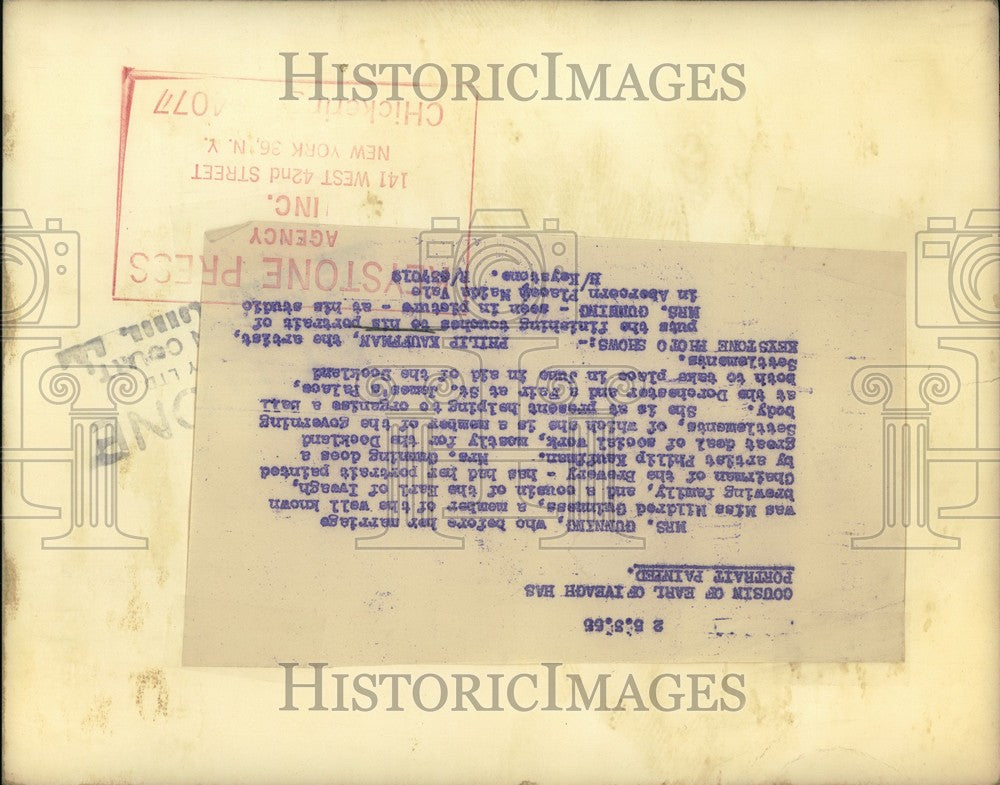 HISTORICIMAGES
2 5.3.55
COUSIN OF EARL OF IVEAGH HAS
PORTRAIT PAINTED.
MRS. GUNNING, who before her marriage
was Miss Mildred Guinness, a member of the well known
brewing family, and a cousin of the Earl of Iveagh,
Chairman of the Brewery - has had her portrait painted
by artist Philip Kauffman. Mrs. Gunning does a
great deal of social work, mostly for the Dockland
Settlements, of which she is a member of the governing
body. She is at present helping to organise a Ball
at the Dorchester and a Fair at St. James's Palace,
both to take place in June in aid of the Dockland
Settlements.
KEYSTONE PHOTO SHOWS:- PHILIP KAUFFMAN, the artist,
puts the finishing touches to his portrait of
MRS. GUNNING - seen in picture - at his studio
in Abercorn Place, Maida Vale
H/Keystone.
KEYSTONE PRESS
AGENCY
INC.
141 WEST 42nd STREET
NEW YORK 36, N. Y.
CHickering
COURT
LONDON,
HISTORICIMAGES